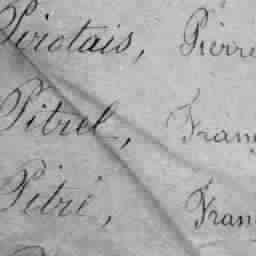 Pirotais, Pierre
Pitrel, Fran
Pitri,  Fran